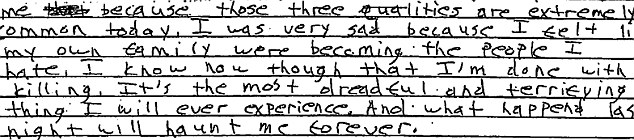 me because those three qualities are extremely
ommon today. I was very sad because I felt li
my own family were becoming the people I
hate. I know now though that I'm done with
killing. It's the most dreadful and terrifying
thing I will ever experience. And what happend las
night will haunt me forever.